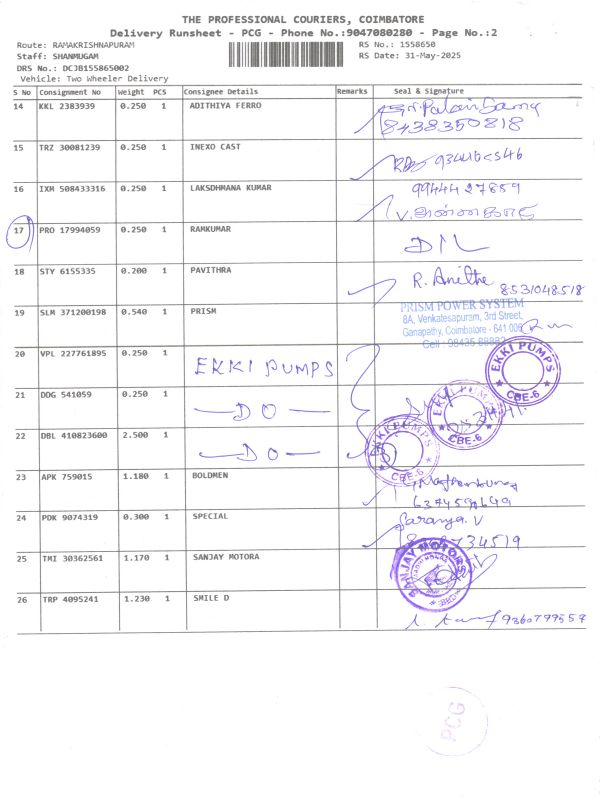 THE PROFESSIONAL COURIERS, COIMBATORE
Delivery Runsheet - PCG - Phone No.:9047080280 - Page No.:2
Route: RAMAKRISHNAPURAM RS No.: 1558650
Staff: SHANMUGAM RS Date: 31-May-2025
DRS No.: DCJB155865002
Vehicle: Two Wheeler Delivery
S No Consignment No Weight PCS Consignee Details Remarks Seal & Signature
14 KKL 2383939 0.250 1 ADITHIYA FERRO
8438350818
15 TRZ 30081239 0.250 1 INEXO CAST
16 IXM 508433316 0.250 1 LAKSDHMANA KUMAR 9944427859
17 PRO 17994059 0.250 1 RAMKUMAR D I L
18 STY 6155335 0.200 1 PAVITHRA R. Anitha 8531048518
19 SLM 371200198 0.540 1 PRISM PRISM POWER SYSTEM
8A, Venkatesapuram, 3rd Street,
Ganapathy, Coimbatore - 641 006
Cell :
20 VPL 227761895 0.250 1 EKKI PUMPS EKKI PUMPS CBE-6
21 DDG 541059 0.250 1 DO EKKI PUMPS CBE-6
22 DBL 410823600 2.500 1 DO EKKI PUMPS CBE-6
23 APK 759015 1.180 1 BOLDMEN
24 PDK 9074319 0.300 1 SPECIAL Saranya. V
25 TMI 30362561 1.170 1 SANJAY MOTORA SANJAY MOTORS
26 TRP 4095241 1.230 1 SMILE D 9360799557
PCG